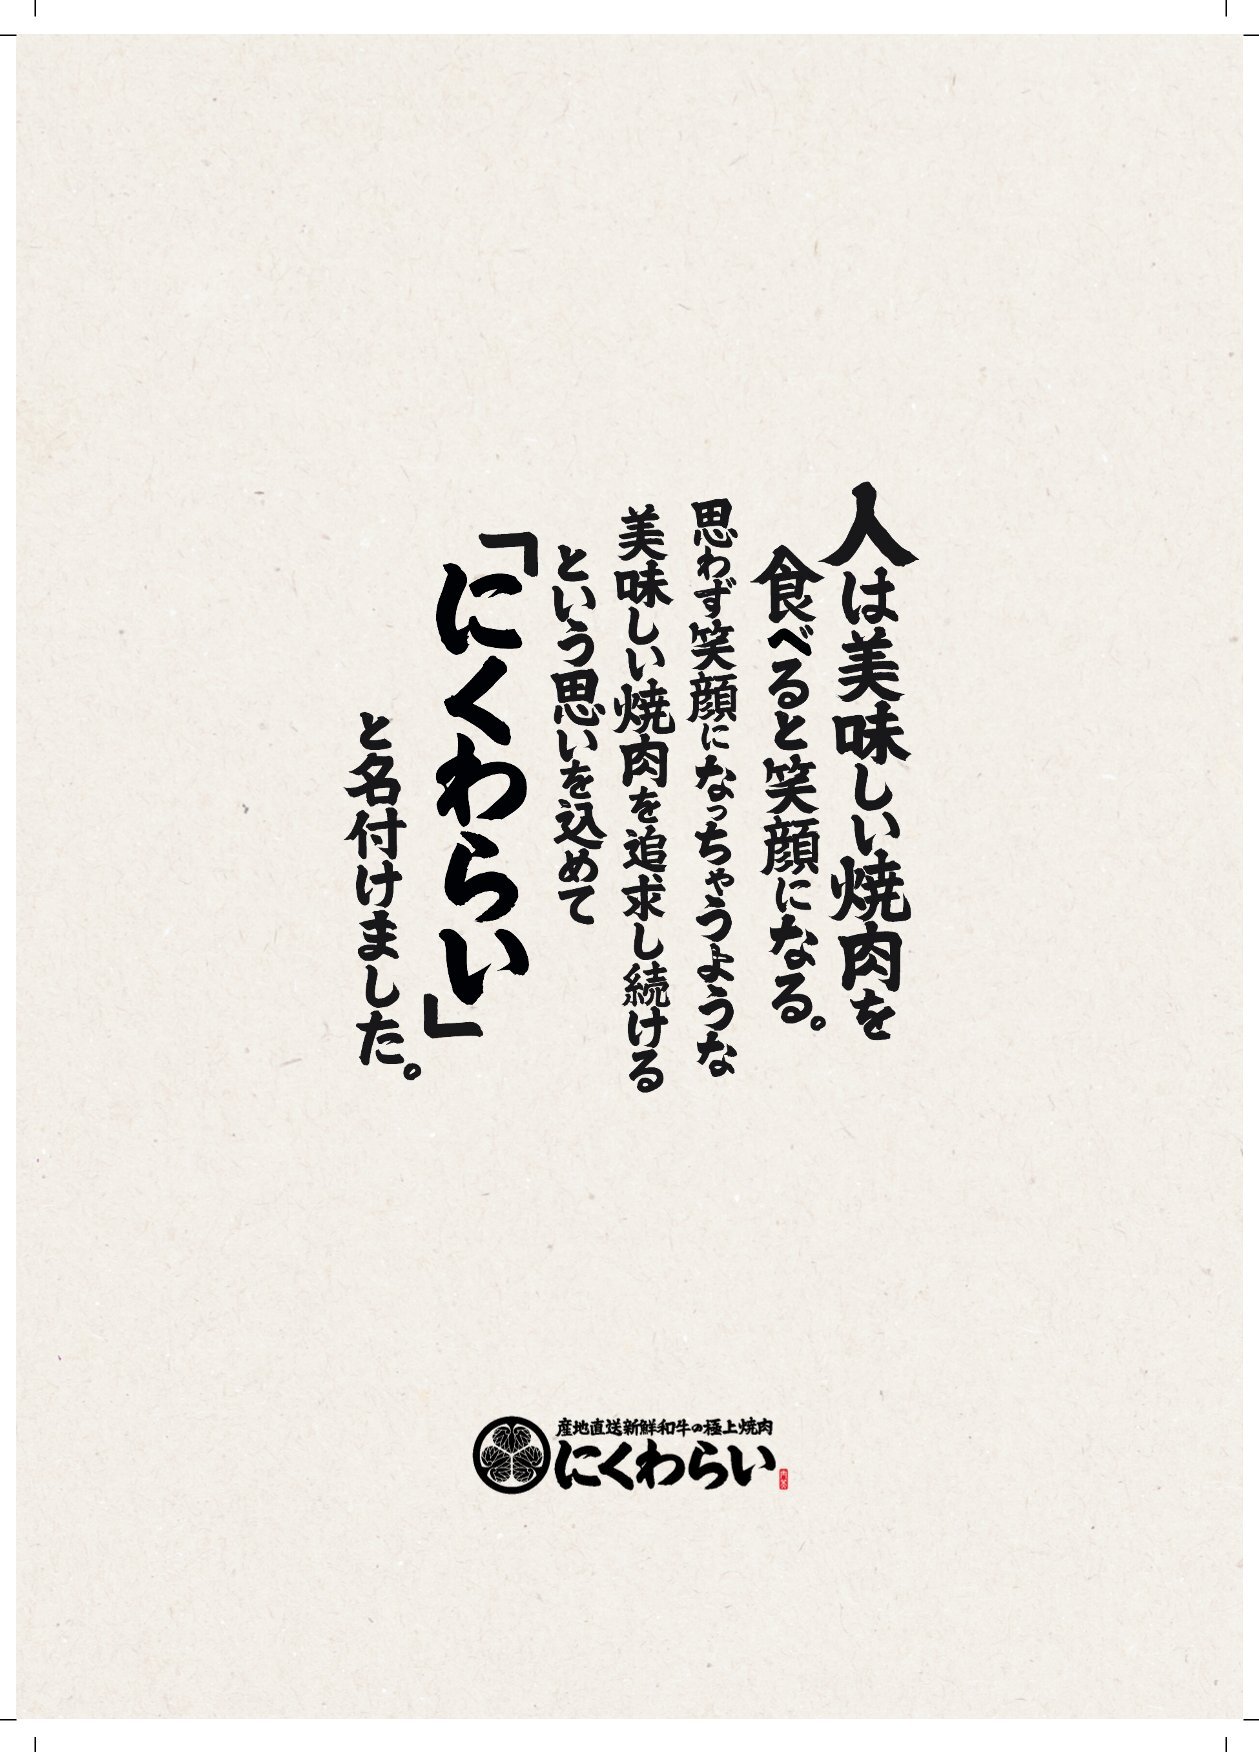 人は美味しい焼肉を
食べると笑顔になる。
思わず笑顔になっちゃうような
美味しい焼肉を追求し続ける
という思いを込めて
「にくわらい」
と名付けました。
産地直送新鮮和牛の極上焼肉
にくわらい